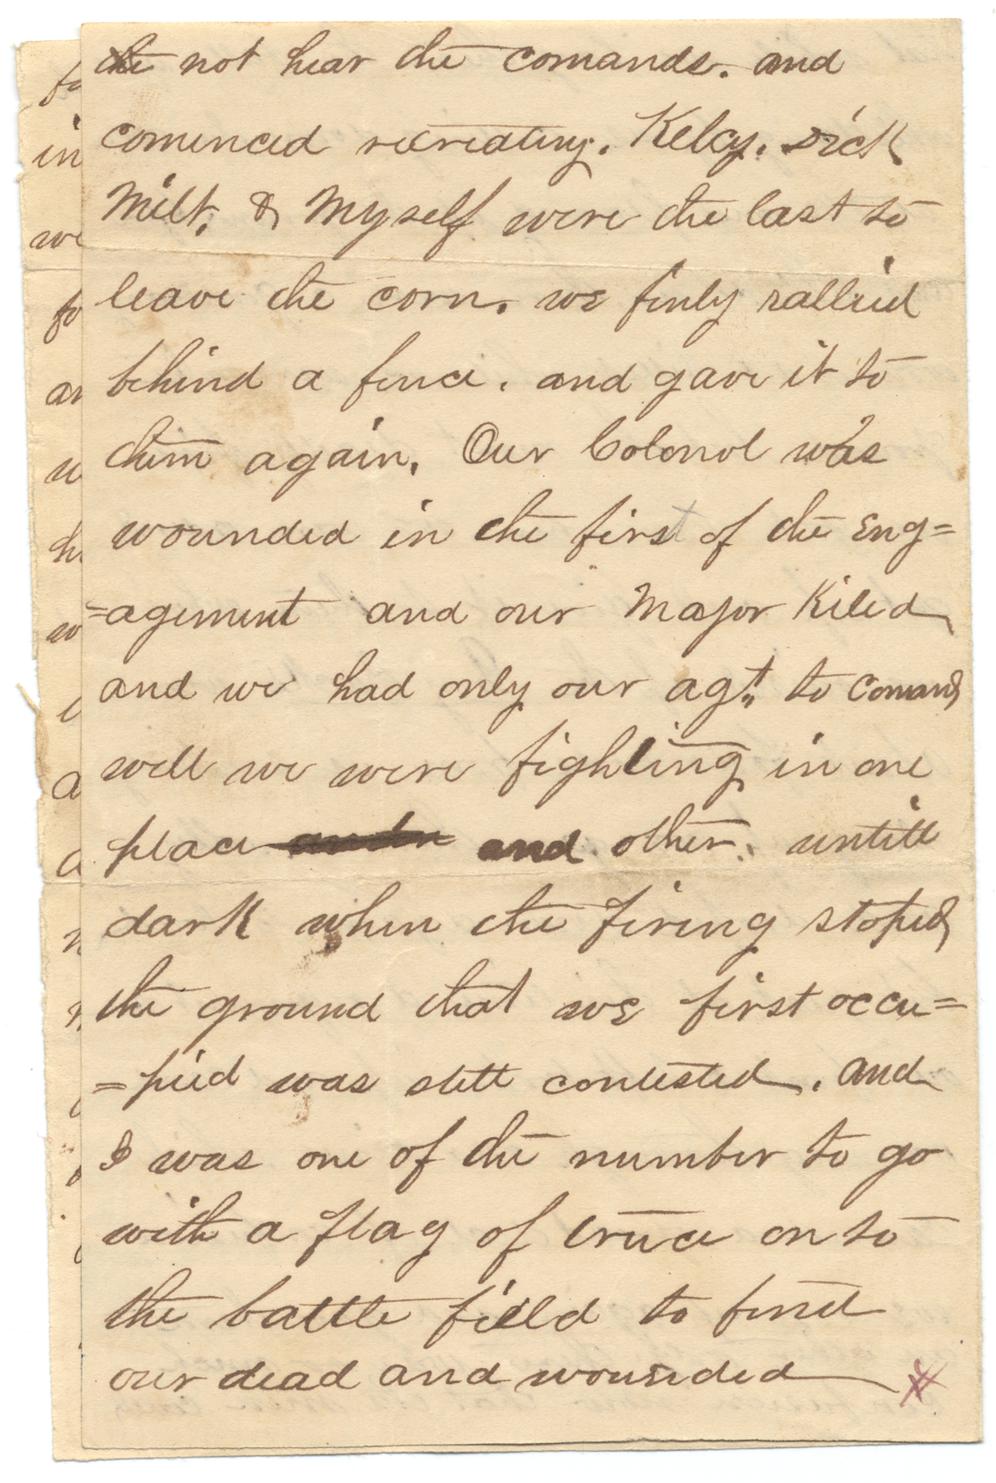 the not hear the comands. and
comenced retreating. Kelcy. Dick
Milt, & Myself were the last to
leave the corn. we finly rallied
behind a fence. and gave it to
them again. Our Colonol was
wounded in the first of the eng=
=agement and our Major Kiled
and we had only our agt,, to comand
well we were fighting in one
place and other. untill
dark when the firing stoped
the ground that we first occu=
=pied was still contested. and
I was one of the number to go
with a flag of truce on to
the battle field to find
our dead and wounded